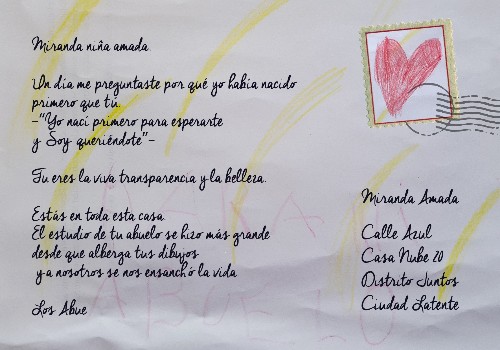 Miranda niña amada
Un día me preguntaste por qué yo había nacido
primero que tú.
-"Yo nací primero para esperarte
y Soy queriéndote"-
Tu eres la viva transparencia y la belleza.
Estás en toda esta casa
El estudio de tu abuelo se hizo más grande
desde que alberga tus dibujos
y a nosotros se nos ensanchó la vida
Los Abue
Miranda Amada
Calle Azul
Casa Nube 20
Distrito Juntos
Ciudad Latente